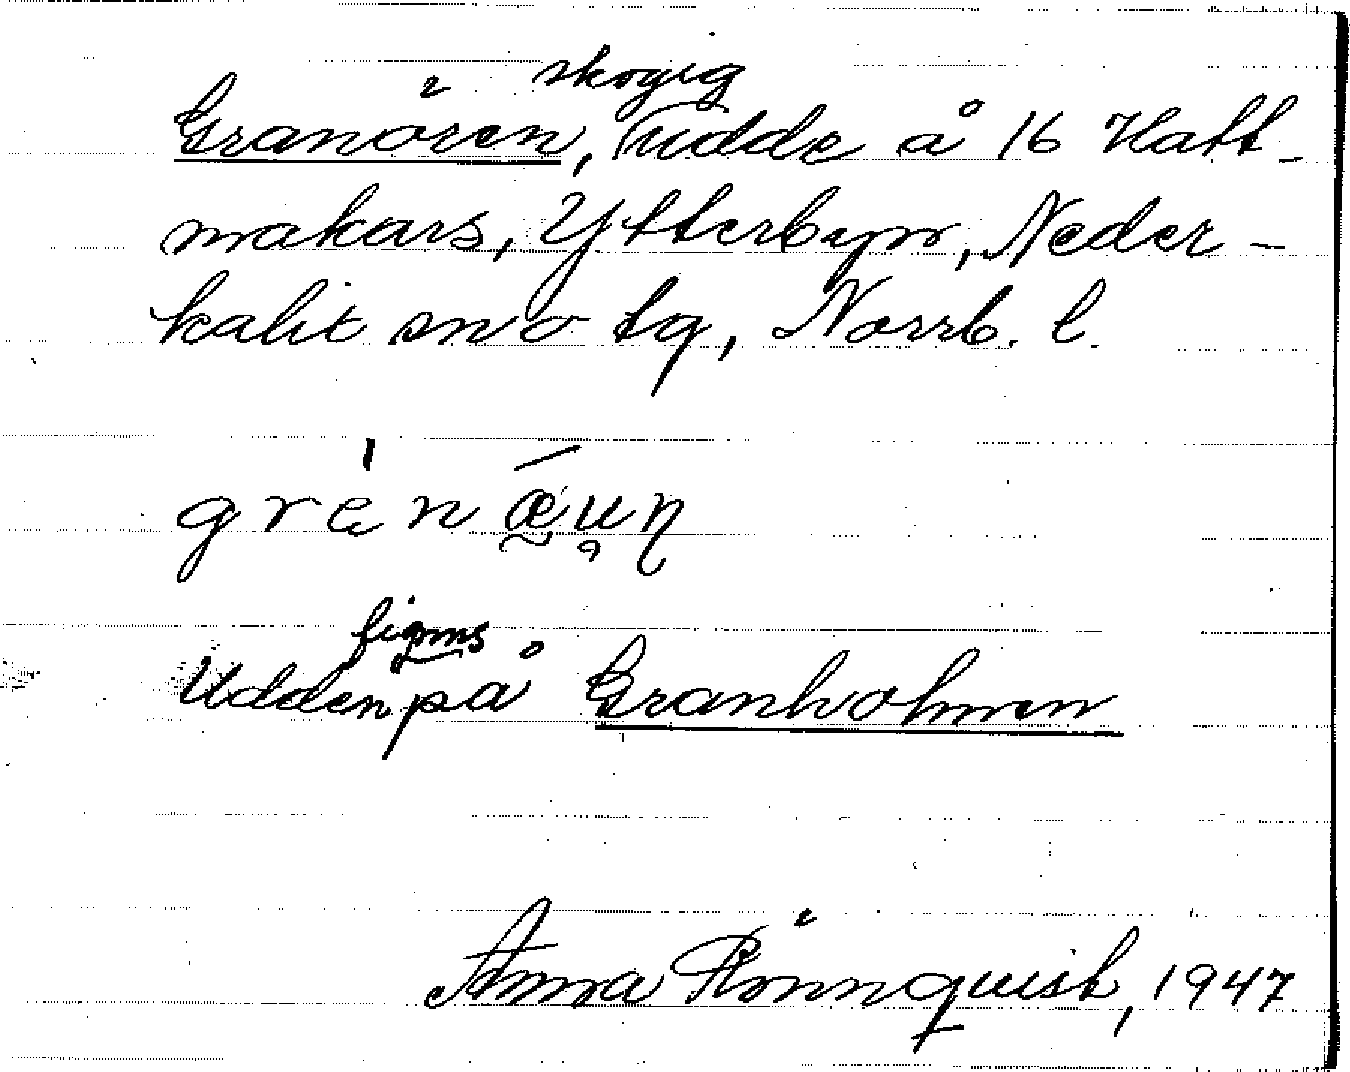 Granören, skogig udde å 16 Hatt-
makars, Ytterbyn, Neder-
kalix sn o tg, Norrb. l.
grènǽun
Udden finns på Granholmen
Anna Rönnquist, 1947